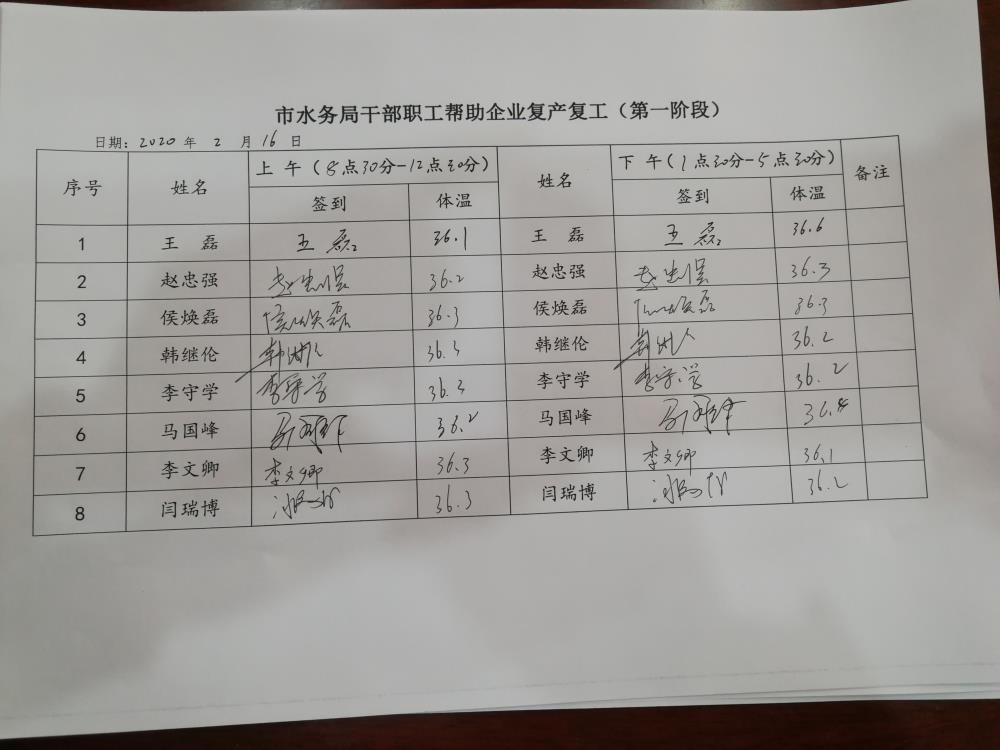 市水务局干部职工帮助企业复产复工（第一阶段）
日期：2020 年 2 月 16 日
序号 姓名 上 午（8点30分-12点30分） 姓名 下 午（1点30分-5点30分） 备注
签到 体温 签到 体温
1 王 磊 王磊 36.1 王 磊 王磊 36.6
2 赵忠强 赵忠强 36.2 赵忠强 赵忠强 36.3
3 侯焕磊 侯焕磊 36.3 侯焕磊 侯焕磊 36.3
4 韩继伦 36.3 韩继伦 36.2
5 李守学 李守学 36.3 李守学 李守学 36.2
6 马国峰 马国峰 36.2 马国峰 马国峰
7 李文卿 李文卿 36.3 李文卿 李文卿 36.1
8 闫瑞博 36.3 闫瑞博 36.2